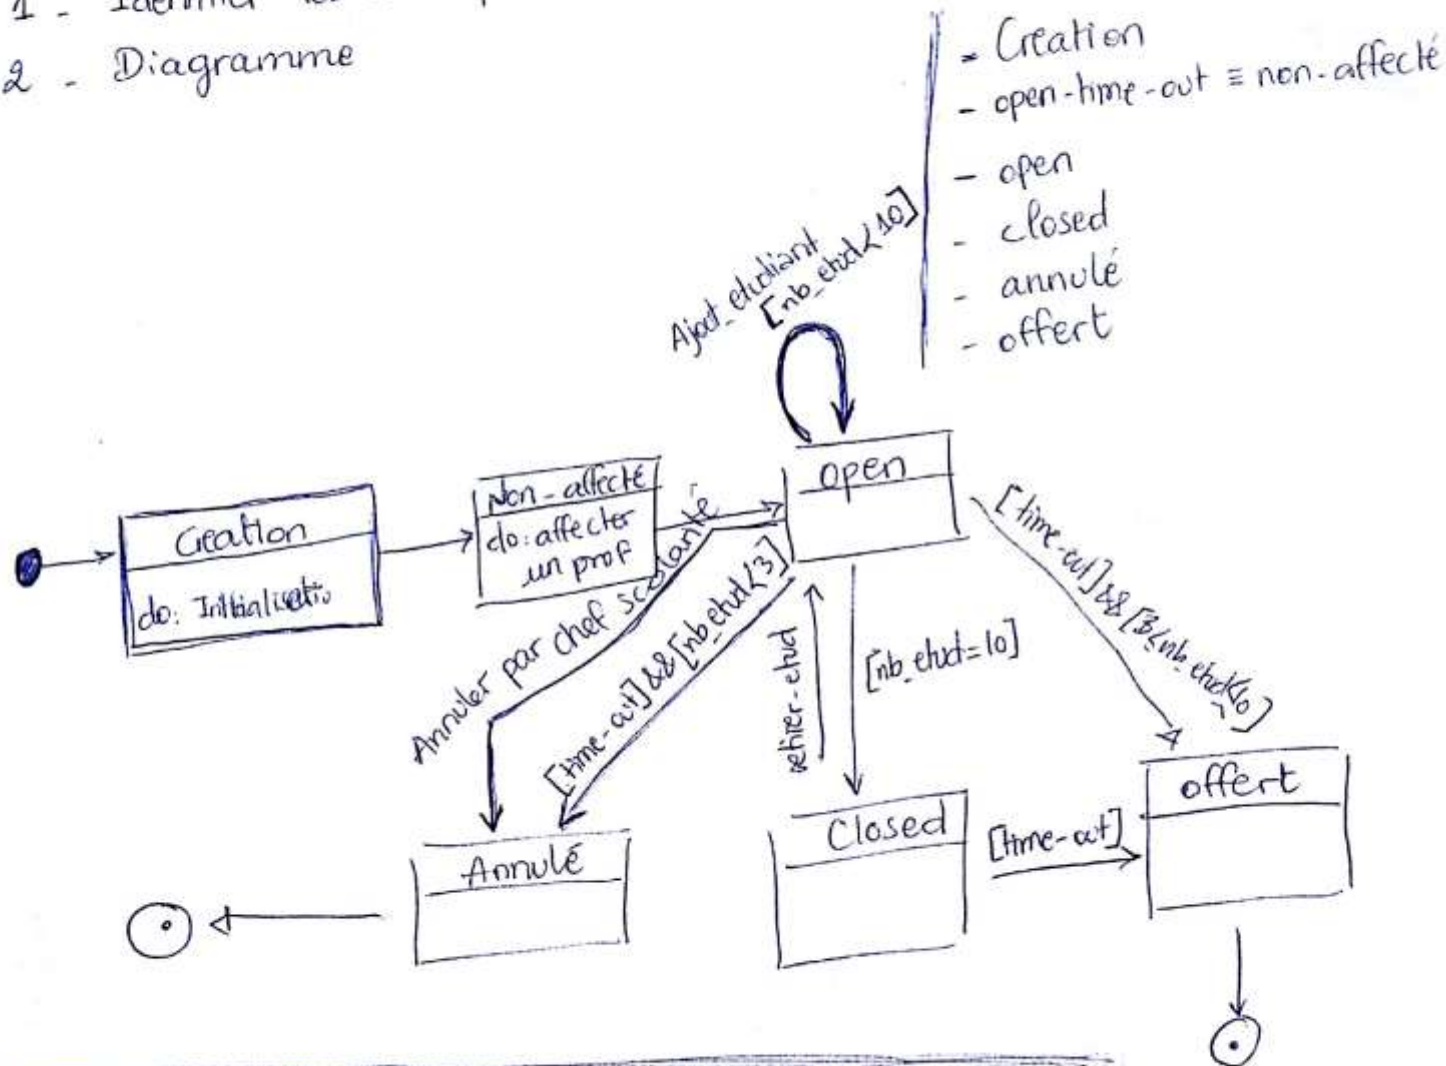 1 - Identifier
2 - Diagramme
- Creation
- open-time-out ≡ non-affecté
- open
- closed
- annulé
- offert
Ajout_etudiant
[nb_etud<10]
Creation
do: Initialisatio
Non-affecté
do: affecter
un prof
open
Annuler par chef scolarité
[time-out] && [nb_etud<3]
retirer-etud
[nb_etud=10]
[time-out] && [3<nb_etud<10]
Annulé
Closed
[time-out]
offert